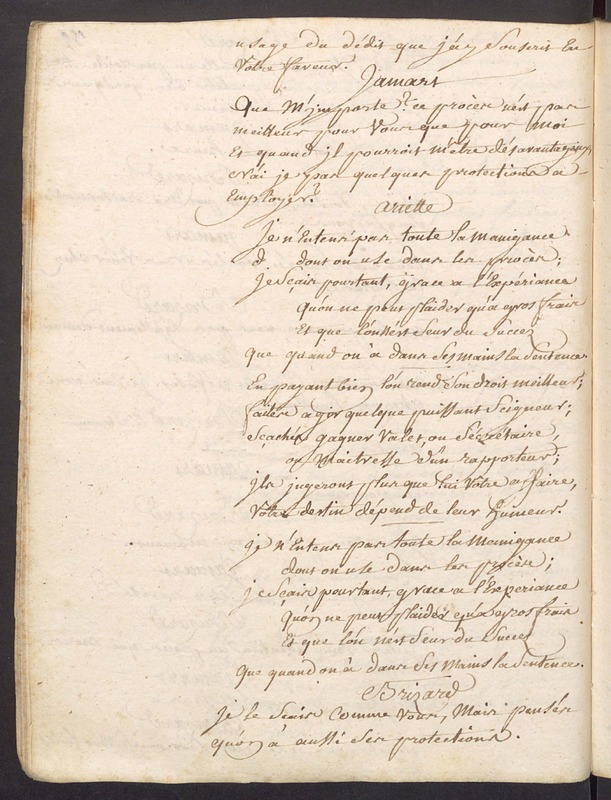 usage du dédit que j'ay souscrit En
Votre faveur.
Jamart
Que M'importe? ce procès n'est pas
meilleur pour Vous que pour moi
Et quand il pourroit m'être désavantageux,
n'ai je pas quelques protections a
Employer?
ariette
Je n'Entens pas toute la manigance
dont on use dans les procès;
Je sçais pourtant, grace a l'Expériance
Qu'on ne peut plaider qu'a gros frais
Et que l'on n'est seur du succez
Que quand on à dans ses mains la sentence.
En payant bien l'on rend son droit meilleur;
faites agir quelque puissant seigneur;
sçachés gagner valet, ou sécrétaire,
ou Maitresse d'un raporteur;
jls jugeront plus que lui Votre affaire,
Votre destin dépend de leur humeur.
je n'Entens pas toute la Manigance
dont on use dans les procès;
je sçais pourtant, grace a l'Expériance
Qu'on ne peut plaider qu'a gros frais
Et que l'on n'est seur du succez
Que quand on à dans ses mains la sentence.
Brizard
je le sçais comme vous, Mais pensés
qu'on à aussi ses protections.